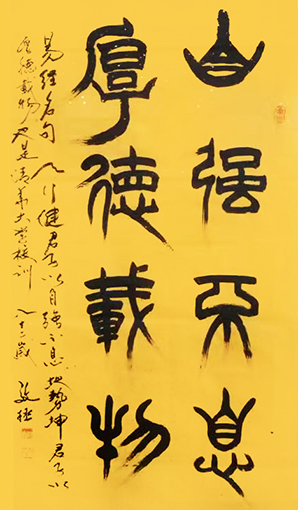 自强不息
厚德載物
易经名句天行健君子以自強不息地勢坤君子以
厚德載物 是清華大学校训